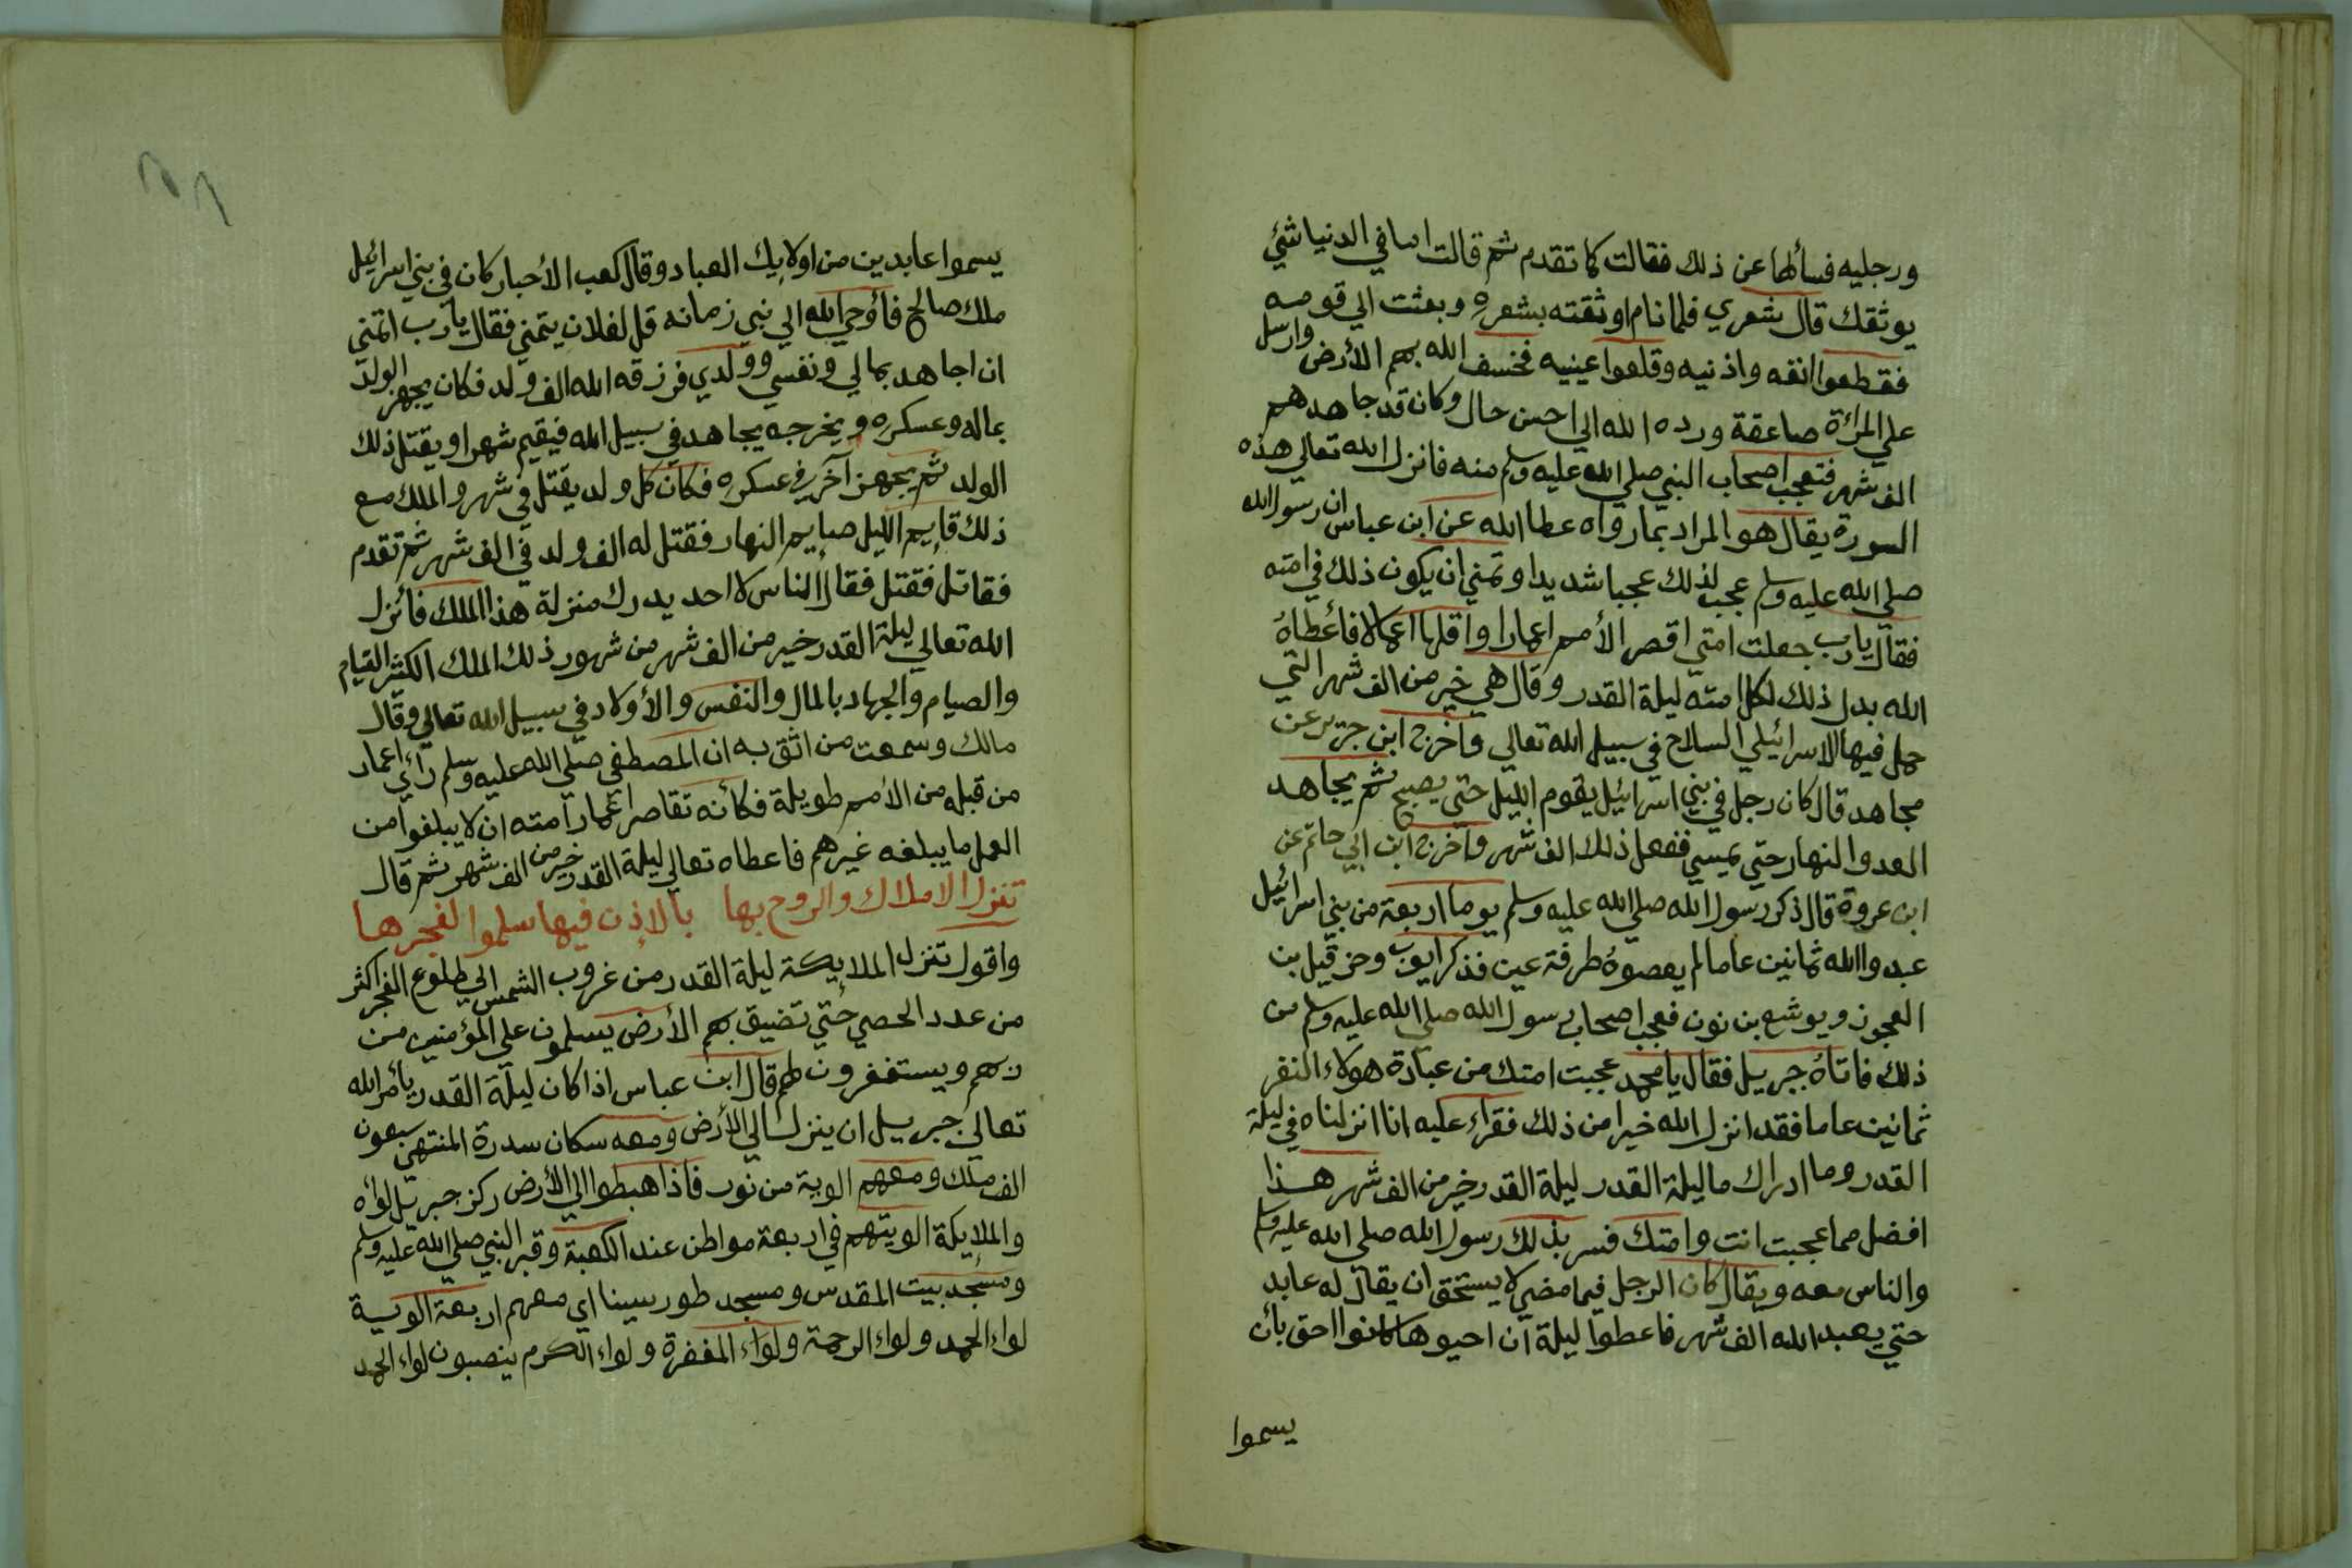 ورجليه فسألها عن ذلك فقالت كما تقدم ثم قالت اما في الدنيا شئ
يوثقك قال شعري فلما نام اوثقته بشعره وبعثت الي قومه
فقطعوا انفه واذنيه وقلعوا عينيه فخسف الله بهم الأرض وارسل
علي المرأة صاعقة ورده الله الي احسن حال وكان قد جاهدهم
الف شهر فتعجب اصحاب النبي صلي الله عليه وسلم منه فانزل الله تعالي هذه
السورة يقال هو المراد بما رواه عطا الله عن ابن عباس ان رسول الله
صلي الله عليه وسلم عجب لذلك عجبا شديدا وتمني ان يكون ذلك في امته
فقال يارب جعلت امتي اقصر الأمم اعمارا واقلها اعمالا فأعطاه
الله بدل ذلك لكل امته ليلة القدر وقال هي خير من الف شهر التي
حمل فيها الاسرائيلي السلاح في سبيل الله تعالي واخرج ابن جرير عن
مجاهد قال كان رجل في بني اسرائيل يقوم الليل حتي يصبح ثم يجاهد
العدو النهار حتي يمسي ففعل ذلك الف شهر واخرج ابن ابي حاتم عن
ابن عروة قال ذكر رسول الله صلي الله عليه وسلم يوما اربعة من بني اسرائيل
عبدوا الله ثمانين عاما لم يعصوه طرفة عين فذكر ايوب وحزقيل بن
العجوز ويوشع بن نون فعجب اصحاب رسول الله صلي الله عليه وسلم من
ذلك فاتاه جبريل فقال يا محمد عجبت امتك من عبادة هولاء النفر
ثمانين عاما فقد انزل الله خيرا من ذلك فقراء عليه انا انزلناه في ليلة
القدر وما ادراك ما ليلة القدر ليلة القدر خير من الف شهر هذا
افضل مما عجبت انت وامتك فسر بذلك رسول الله صلي الله عليه وسلم
والناس معه ويقال كان الرجل فيما مضي لا يستحق ان يقال له عابد
حتي يعبد الله الف شهر فاعطوا ليلة ان احيوها كانوا احق بأن
يسموا
يسموا عابدين من اولايك العباد وقال كعب الأحبار كان في بني اسرائيل
ملك صالح فأوحي الله الي نبي زمانه قل لفلان يتمني فقال يارب اتمني
ان اجاهد بمالي ونفسي وولدي فرزقه الله الف ولد فكان يجهز الولد
بماله وعسكره ويخرجه يجاهد في سبيل الله فيقيم شهرا ويقتل ذلك
الولد ثم يجهز آخر في عسكره فكان كل ولد يقتل في شهر والملك مع
ذلك قايم الليل صايم النهار فقتل له الف ولد في الف شهر ثم تقدم
فقاتل فقتل فقال الناس لا احد يدرك منزلة هذا الملك فأنزل
الله تعالي ليلة القدر خير من الف شهر من شهور ذلك الملك الكثير القيام
والصيام والجهاد بالمال والنفس والأولاد في سبيل الله تعالي وقال
مالك وسمعت من اثق به ان المصطفي صلي الله عليه وسلم رأي اعمار
من قبله من الأمم طويلة فكأنه تقاصر اعمار امته ان لا يبلغوا من
العمل ما يبلغه غيرهم فاعطاه تعالي ليلة القدر خير من الف شهر ثم قال
تنزل الاملاك والروح بها بالاذن فيها سلموا لفجرها
واقول تنزل الملايكة ليلة القدر من غروب الشمس الي طلوع الفجر اكثر
من عدد الحصي حتي تضيق بهم الأرض يسلمون علي المؤمنين من
ربهم ويستغفرون لهم قال ابن عباس اذا كان ليلة القدر يأمر الله
تعالي جبريل ان ينزل الي الأرض ومعه سكان سدرة المنتهي سبعون
الف ملك ومعهم الوية من نور فاذا هبطوا الي الأرض ركز جبريل لواءه
والملايكة الويتهم في اربعة مواطن عند الكعبة وقبر النبي صلي الله عليه وسلم
ومسجد بيت المقدس ومسجد طور سينا اي معهم اربعة الوية
لواء الحمد ولواء الرحمة ولواء المغفرة ولواء الكرم ينصبون لواء الحمد